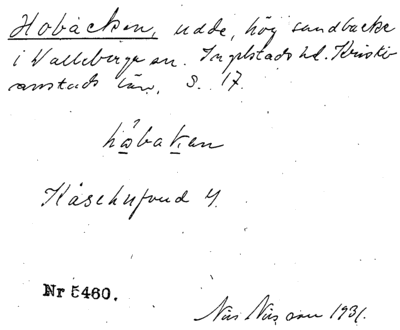 Hobacken, udde, hög sandbacke
i Valleberga sn. Ingelstads hd. Kristi-
anstads län, S. 17.
håbaken
Nr 5460.
Nils Nilsson 1931.